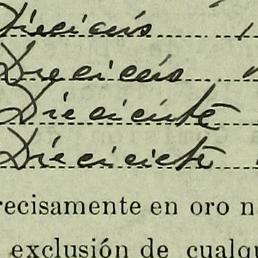 Dieciseis
Dieciseis
Diecisiete
Diecisiete
recisamente en oro n
exclusión de cualqu